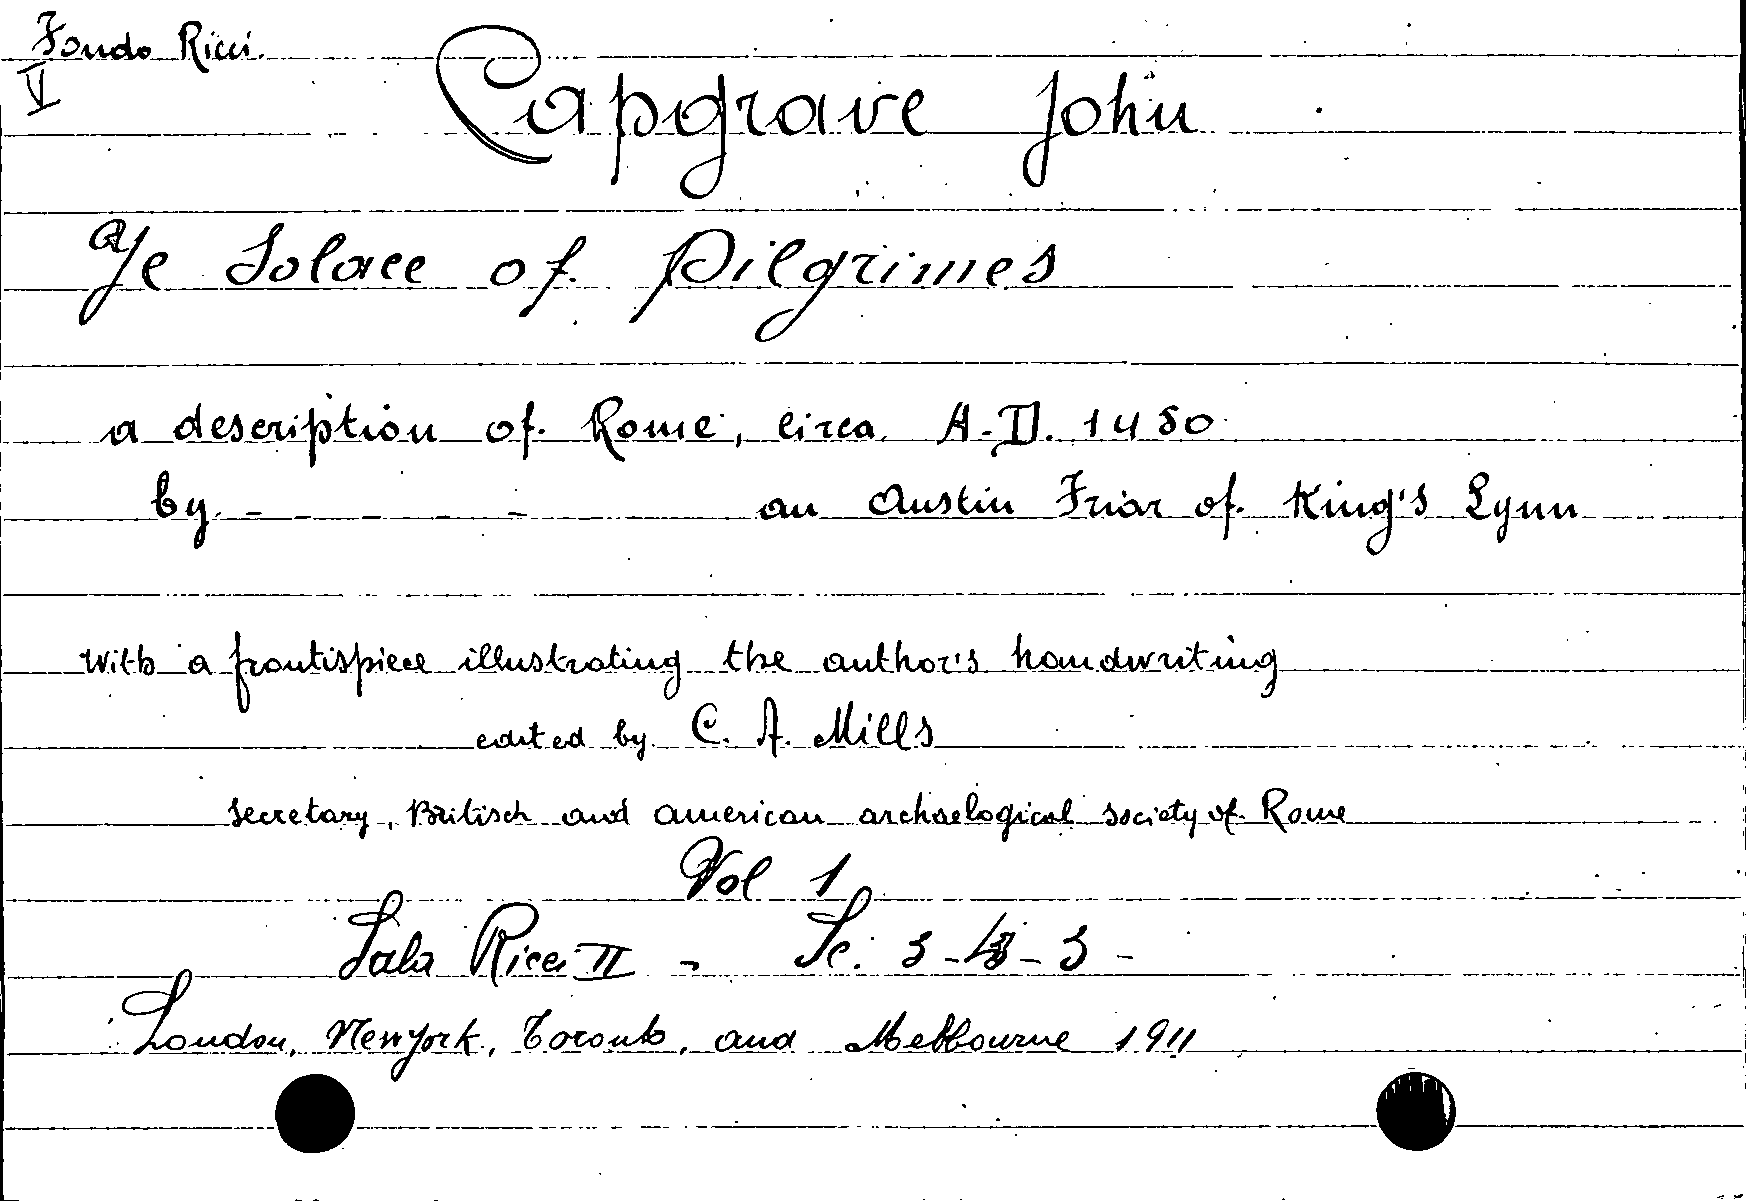 Fondo Ricci.
V
Capgrave John
Ye Solace of Pilgrimes
a description of Rome, circa A.D. 1450
by - - - - an Austin Friar of King's Lynn
with a frontispiece illustrating the author's handwriting
edited by C. A. Mills
secretary, Britisch and american archaelogical society of Rome
Vol 1
Sala Ricci II - Sc. 3 - - 3 -
London, New york, Toronto, and Melbourne 1911